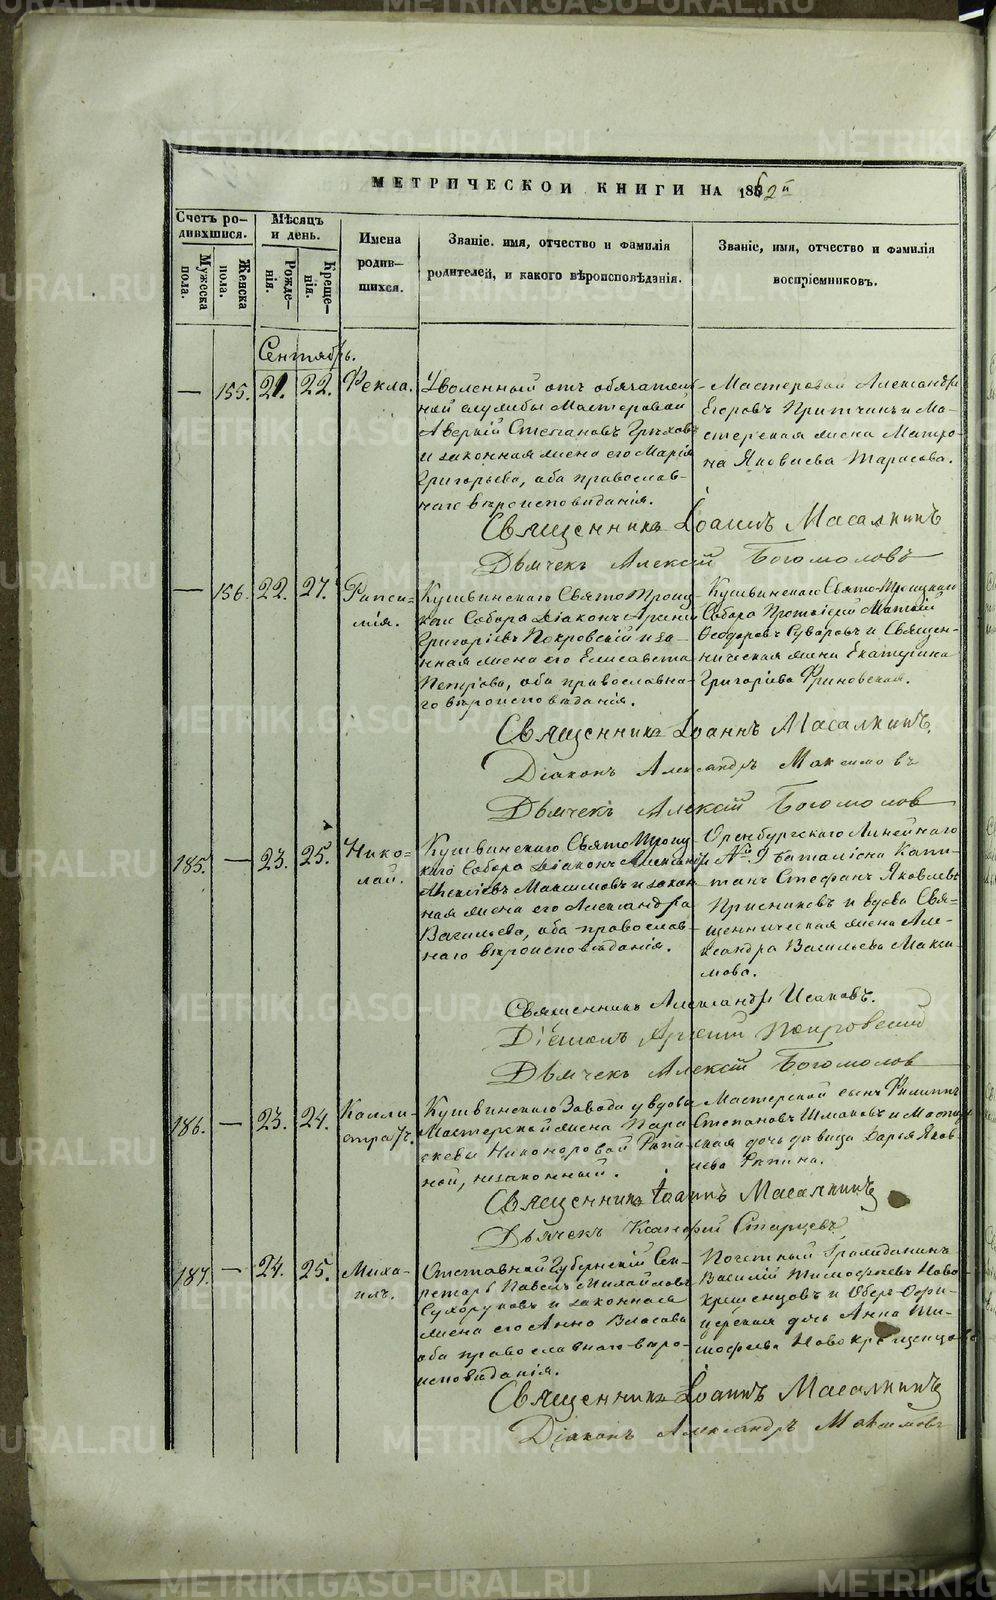 МЕТРИЧЕСКОЙ КНИГИ НА 1862й
Счетъ ро-
дившихся.
Мужеска
пола.
Женска
пола.
Мѣсяцъ
и день.
Рожде-
нія.
Креще-
нія.
Имена
родив-
шихся.
Званіе. имя, отчество и фамилія
родителей, и какого вѣроисповѣданія.
Званіе, имя, отчество и фамилія
воспріемниковъ.
Сентябрь.
— 155. 21. 22. Фекла.
Уволенный отъ обязатель-
ной службы Мастеровой
Аверкій Степановъ
и законная жена его Марія
Григорьева, оба православ-
наго вѣроисповѣданія.
Мастеровой Александръ
Егоровъ Притчинъ и Ма-
стерская жена Матро-
на Яковлева Тарасова.
Священникъ Іоаннъ Масалкинъ
Дьячекъ Алексій Богомоловъ
— 156. 22. 27. Рипси-
мія.
Кушвинскаго Свято Троиц-
каго Собора Діаконъ
Григоріевъ Покровскій и за-
нная жена его Елисавета
Петрова, оба православна-
го вѣроисповѣданія.
Кушвинскаго Свято-Троицкаго
Собора Протоіерей Матвій
Ѳеодоровъ Суваровъ и Священ-
ническая жена Екатерина
Григоріева
Священникъ Іоаннъ Масалкинъ.
Діаконъ Александръ Максимовъ
Дьячекъ Алексій Богомолов
185. — 23. 25. Нико-
лай.
Кушвинскаго Свято Троиц
каго Собора Діаконъ Александръ
Алексіевъ Максимовъ и закон
ная жена его Александра
Васильева, оба православ-
наго вѣроисповѣданія.
Оренбургскаго Линейнаго
№ 9 баталіона Капи-
танъ Стефанъ Яковлевъ
Присниковъ и вдова Свя=
щенническая жена Але-
ксандра Васильева Макси-
мова.
Священникъ Александръ Исаковъ.
Діаконъ Арсеній Покровскій
Дьячекъ Алексій Богомолов
186. — 23. 24. Калли-
стратъ.
Кушвинскаго Завода у вдовы
Мастерской жена Пара
скевы Никоноровой
ной, незаконный.
Мастерской сынъ Филиппъ
Степановъ Шмаковъ и Мастер
ская дочь дѣвица Дарья Яков-
лева
Священникъ Іоаннъ Масалкинъ
Дьячекъ Ксенофый Старцевъ
187. — 24. 25. Миха-
илъ.
Отставной Губернскій Сек-
ретарь Павелъ Михайловъ
Сухоруковъ и законная
жена его Анна Власова
оба православнаго вѣро-
исповѣданія.
Почетный Гражданинъ
Василій Тимофѣевъ Ново
крещенцовъ и Оберъ Офи-
церская дочь Анна Ти-
мофѣева Новокрещенцова
Священникъ Іоаннъ Масалкинъ
Діаконъ Александръ Максимовъ
METRIKI.GASO-URAL.RU